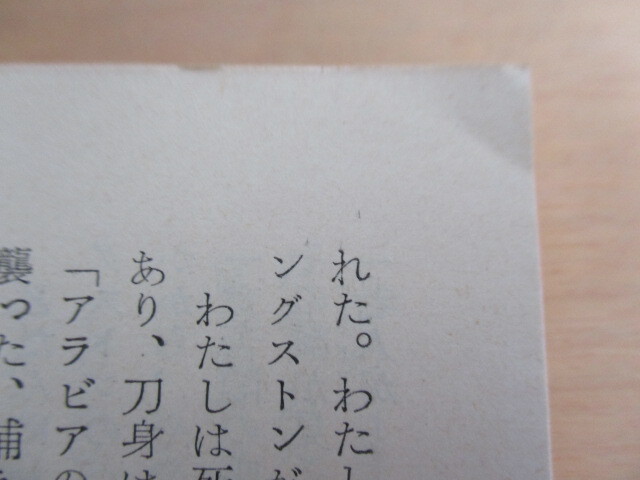 れた。わたし
ングストンが
わたしは死
あり、刀身は
「アラビアの
襲った、捕